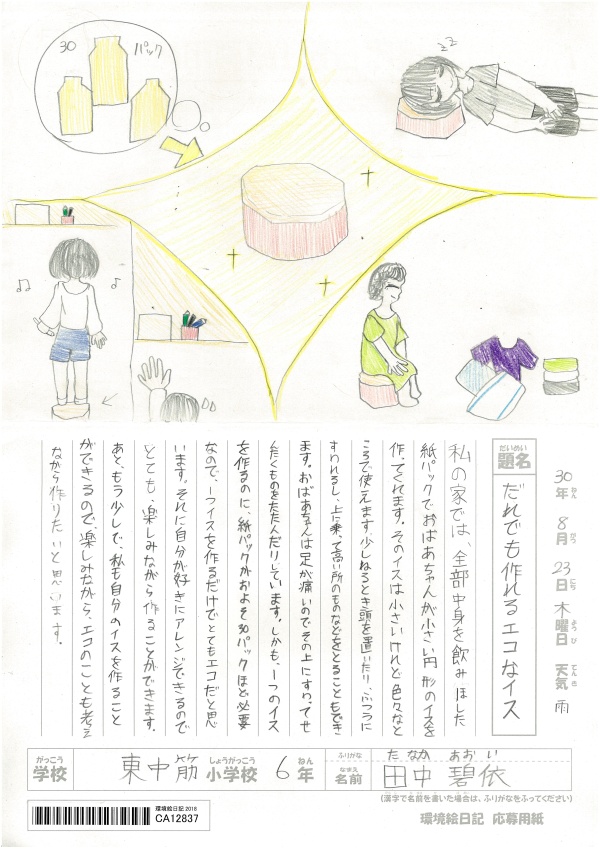 30
パック
30年 8月 23日 木曜日 天気 雨
ねん がつ にち もくようび てんき
だいめい
題名 だれでも作れるエコなイス
私の家では、全部中身を飲みほした
紙パックでおばあちゃんが小さい円形のイスを
作ってくれます。そのイスは小さいけれど色々なと
ころで使えます。少しねるとき頭を置いたり、ふつうに
すわれるし、上に乗って高い所のものなどをとることもでき
ます。おばあちゃんは足が痛いのでその上にすわってせ
んたくものをたたんだりしています。しかも、一つのイス
を作るのに、紙パックがおよそ30パックほど必要
なので、一つイスを作るだけでとてもエコだと思
います。それに自分が好きにアレンジできるので
とても、楽しみながら作ることができます。
あと、もう少しで、私も自分のイスを作ること
ができるので、楽しみながら、エコのことも考え
ながら作りたいと思います。
がっこう しょうがっこう ねん
学校 東中筋 小学校 6年
ふりがな たなか あおい
なまえ
名前 田中 碧依
(漢字で名前を書いた場合は、ふりがなをふってください)
環境絵日記 2018
CA12837
環境絵日記 応募用紙